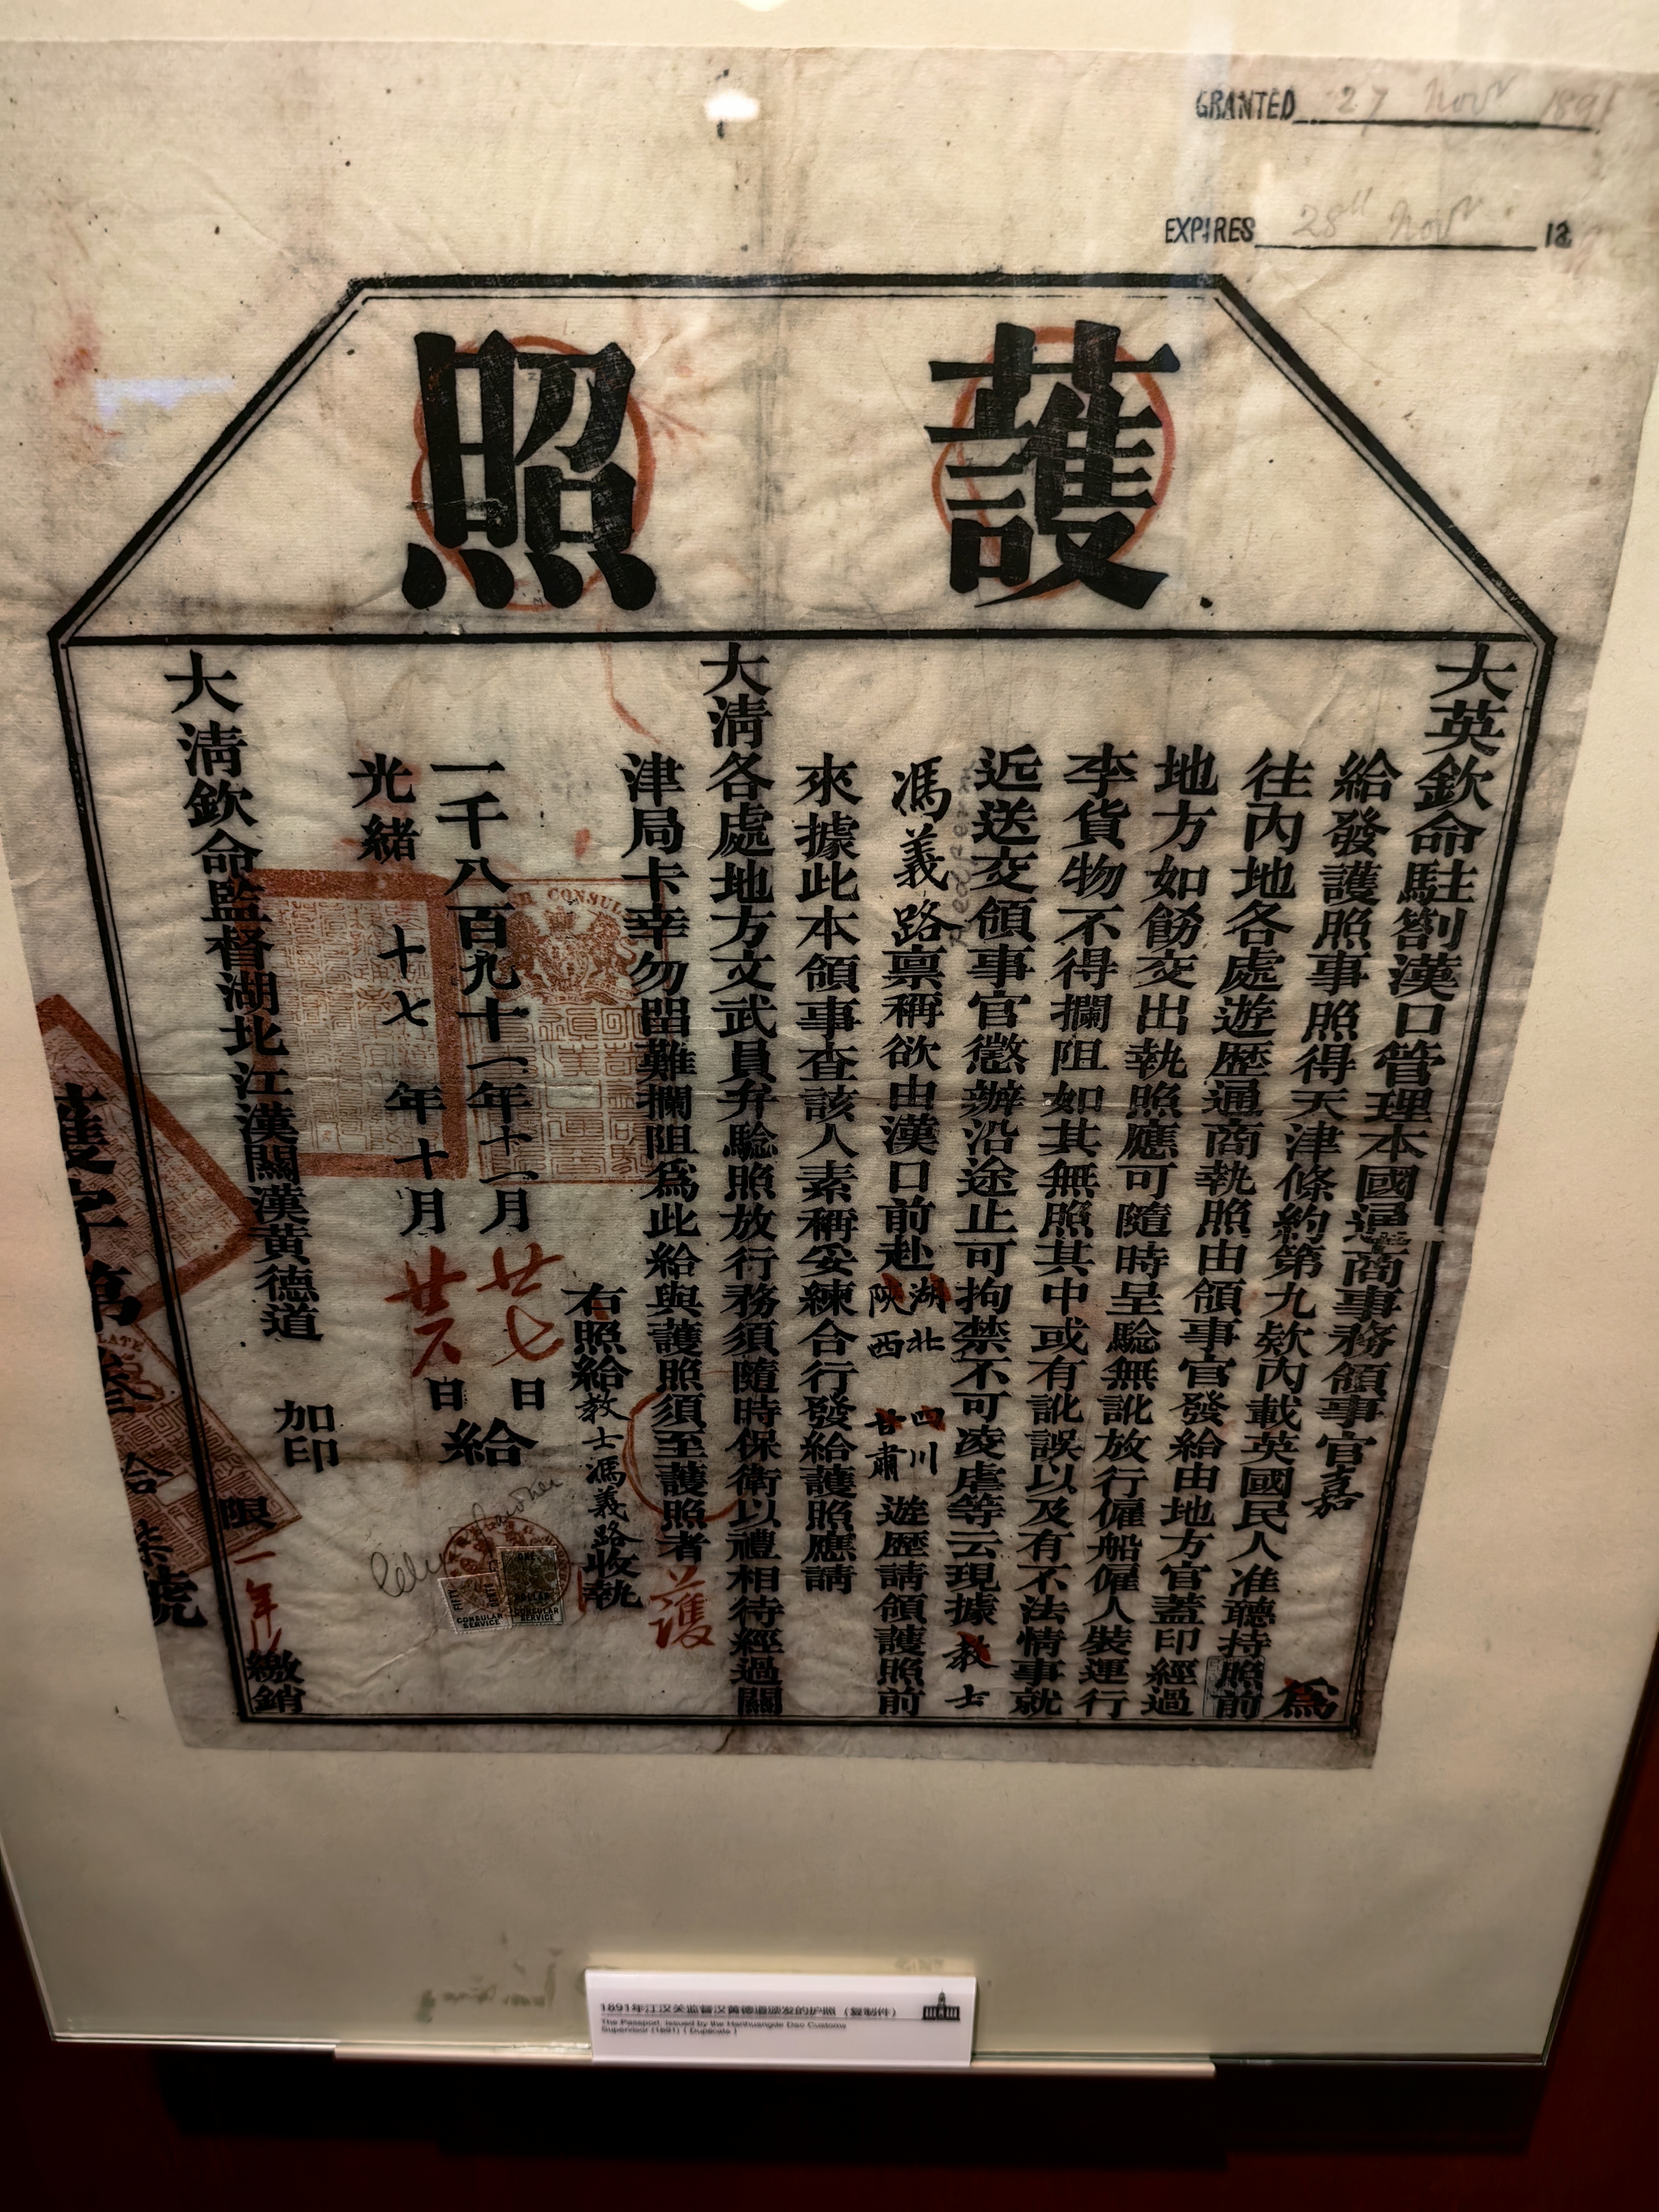 GRANTED 27 Novr 1891
EXPIRES 28th Novr 18
護照
大英欽命駐劄漢口管理本國通商事務領事官嘉 為
給發護照事照得天津條約第九欵內載英國民人准聽持照前
往內地各處遊歷通商執照由領事官發給由地方官蓋印經過
地方如飭交出執照應可隨時呈驗無訛放行僱船僱人裝運行
李貨物不得攔阻如其無照其中或有訛誤以及有不法情事就
近送交領事官懲辦沿途止可拘禁不可凌虐等云現據教士
馮義路稟稱欲由漢口前赴湖北四川陝西甘肅遊歷請領護照前
來據此本領事查該人素稱妥練合行發給護照應請
大清各處地方文武員弁驗照放行務須隨時保衛以禮相待經過關
津局卡幸勿留難攔阻為此給與護照須至護照者
護
右照給教士馮義路收執
一千八百九十一年十一月廿七日
光緒十七年十月廿六日
給
大清欽命監督湖北江漢關漢黃德道 加印
限一年繳銷
護字第叁拾柒號
CONSULAR SERVICE
ONE DOLLAR
CONSULAR SERVICE
1891年江汉关监督汉黄德道颁发的护照（复制件）
The Passport, Issued by the Hanhuangde Dao Customs
Supervisor (1891) ( Duplicate )